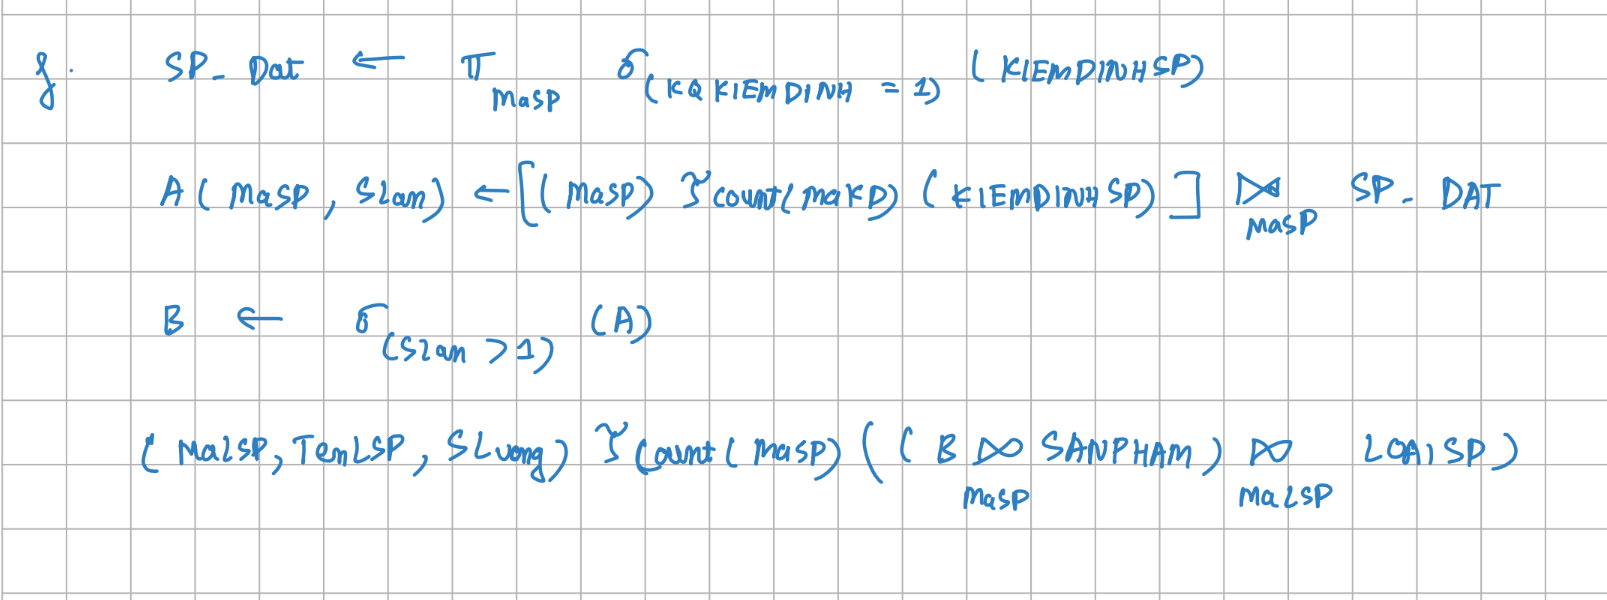 f. SP_Dat ← π MaSP σ (KQKIEMDINH = 1) (KIEMDINHSP)
A(MaSP, Slan) ← [(MaSP) ℑ count(MaKD) (KIEMDINHSP)] ⋈ MaSP SP_DAT
B ← σ (Slan > 1) (A)
(MaLSP, TenLSP, SLuong) ℑ Count(MaSP) ((B ⋈ MaSP SANPHAM) ⋈ MaLSP LOAISP)